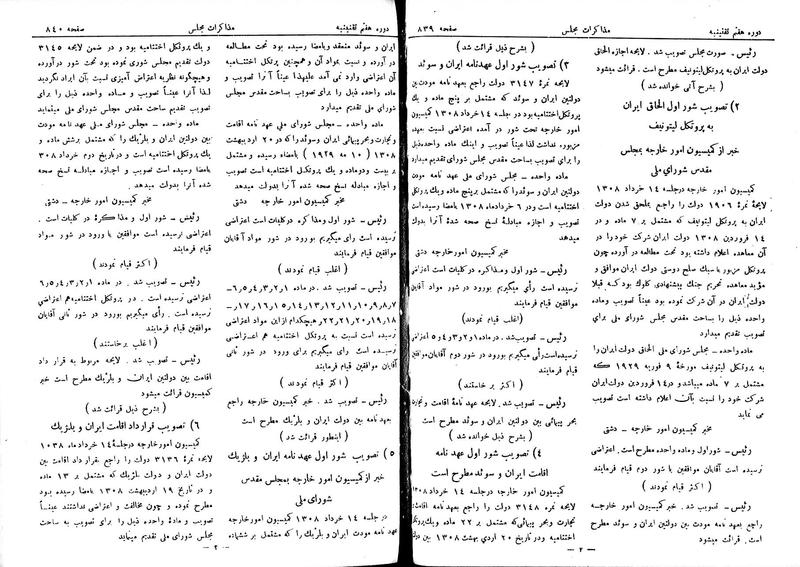 دوره هفتم تقنینیه مذاکرات مجلس صفحه ۸۳۹
رئیس – صورت مجلس تصویب شد . لایحه اجازه الحاق
دولت ایران به پروتکل لیتونیف مطرح است . قرائت میشود
( بشرح آتی خوانده شد )
۲) تصویب شور اول الحاق ایران
به پروتکل لیتونیف
خبر از کمیسیون امور خارجه بمجلس
مقدس شورای ملی
کمیسیون امور خارجه درجلسه ۱۴ خرداد ۱۳۰۸
لایحه نمرهٔ ۱۹۰۶ دولت را راجع بملحق شدن دولت
ایران به پروتکل لیتونیف که مشتمل بر ۷ ماده و در
۱۴ فروردین ۱۳۰۸ دولت ایران شرکت خود را در
آن معاهده اعلام داشته بود تحت مطالعه در آورده چون
پروتکل مزبور با سبک صلح دوستی دولت ایران موافق و
مؤید معاهده تحریم جنگ پیشنهادی کلوک بود که قبلا
دولت ایران در آن شرکت نموده بود عیناً تصویب وماده
واحده ذیل را بساحت مقدس مجلس شورای ملی برای
تصویب تقدیم میدارد
ماده واحده – مجلس شورای ملی الحاق دولت ایران را
به پروتکل لیتونیف مورخهٔ ۹ فوریه ۱۹۲۹ که
مشتمل بر ۷ ماده میباشد و در۱۴ فروردین دولت ایران
شرکت خود را نسبت بآن اعلام داشته است تصویب
می نماید
مخبر کمیسیون امور خارجه – دشتی
رئیس – شور اول وماده واحده مطرح است . اعتراضی
نرسیده است آقایان موافقین با شور دوم قیام فرمایند
( اکثر قیام نمودند )
رئیس – تصویب شد . خبر کمیسیون امور خارجه
راجع بعهد نامه مودت بین دولتین ایران و سوئد مطرح
است . قرائت میشود
( بشرح ذیل قرائت شد )
۳) تصویب شور اول عهدنامه ایران و سوئد
لایحه نمرهٔ ۳۱۴۷ دولت راجع بعهد نامه مودت بین
دولتین ایران و سوئد که مشتمل بر پنج ماده و یک
پروتکل اختتامیه بود در جلسه ۱۴ خرداد ۱۳۰۸ کمیسیون
امور خارجه تحت شور در آمده اعتراضی نسبت بعهد نامه
مزبور نداشت لذا عیناً تصویب و اینک ماده واحده ذیل
را برای تصویب بساحت مقدس مجلس شورای ملی تقدیم میدارد
ماده واحده – مجلس شورای ملی عهد نامه مودت
دولتین ایران و سوئد را که مشتمل برپنج ماده و یک پروتکل
اختتامیه است و در ۶ خردادماه ۱۳۰۸ بامضا رسیده است
تصویب و اجازه مبادلهٔ نسخ صحه شدهٔ آنرا بدولت
میدهد
مخبر کمیسیون امورخارجه دشتی
رئیس – شور اول و مذاکره در کلیات است اعتراضی
نرسیده است . رأی میگیریم بورود در شور مواد آقایان
موافقین قیام فرمایند
(اغلب قیام نمودند)
رئیس – تصویب شد . در ماده ۱و۲و۳و۴و۵ اعتراضی
نرسیده است رأی میگیریم بورود در شور دوم آقایان موافقین
قیام فرمایند
( اکثر بر خاستند )
رئیس – تصویب شد. لایحه عهد نامه اقامت و تجارت و
بحر پیمائی بین دولتین ایران و سوئد مطرح است
( بشرح ذیل خوانده شد )
۴) تصویب شور اول عهد نامه
اقامت ایران و سوئد مطرح است
کمیسیون امور خارجه درجلسه ۱۴ خرداد ۱۳۰۸
لایحه نمرهٔ ۳۱۴۸ دولت را راجع بعهد نامهٔ اقامت
تجارت وبحر پیمائی که مشتمل بر ۲۲ ماده ویک پروتکل
اختتامیه ودر تاریخ ۲۰ اردی بهشت ۱۳۰۸ بین دولتین
– ۲ –
دوره هفتم تقنینیه مذاکرات مجلس صفحه ۸۴۰
ایران و سوئد منعقد وبامضا رسیده بود تحت مطالعه
در آورده و نسبت بمواد آن وهمچنین پروتکل اختتامیه
آن اعتراضی وارد نمی آمد علیهذا عیناً آنرا تصویب و
ماده واحده ذیل را برای تصویب بساحت مقدس مجلس
شورای ملی تقدیم میدارد
ماده واحده – مجلس شورای ملی عهد نامه اقامت
تجارت وبحر پیمائی ایران وسوئد را که در ۲۰ اردیبهشت
۱۳۰۸ ( ۱۰ مه ۱۹۲۹ ) بامضاء رسیده و مشتمل
بر بیست ودوماده و یک پروتکل اختتامیه است تصویب
و اجازه مبادله نسخ صحه شده آنرا بدولت میدهد
مخبر کمیسیون امور خارجه دشتی
رئیس – شور اول ومذاکره در کلیات است اعتراضی
نرسیده است رأی میگیریم بورود در شور مواد آقایان
موافقین قیام فرمایند
( اغلب قیام نمودند )
رئیس – تصویب شد . در ماده ۱و۲و۳و۴و۵و۶و
۷و۸و۹و۱۰و۱۱و۱۲و۱۳و۱۴و۱۵و۱۶و۱۷و
۱۸و۱۹و۲۰و۲۱و۲۲و هیچکدام از این مواد اعتراضی
نرسیده است نسبت به پروتکل اختتامیه هم اعتراضی
نرسیده است رأی میگیریم برای ورود در شور ثانی
آقایان موافقین قیام فرمایند
( اکثر قیام نمودند )
رئیس – تصویب شد . خبر کمیسیون خارجه راجع
بعهد نامه بین دولت ایران و بلژیک مطرح است
( اینطور قرائت شد )
۵) تصویب شور اول عهد نامه ایران و بلژیک
خبر از کمیسیون امور خارجه بمجلس مقدس
شورای ملی
در جلسه ۱۴ خرداد ۱۳۰۸ کمیسیون امور خارجه
عهد نامه مودت ایران و بلژیک را که مشتمل بر ششماده
و یک پروتکل اختتامیه بود و در ضمن لایحه ۳۱۴۵
دولت تقدیم مجلس شوری نموده بود تحت شور در آورده
و هیچگونه نظریه اعتراض آمیزی نسبت بآن ایراد نگردید
لذا آنرا عیناً تصویب و ماده واحده ذیل را برای
تصویب تقدیم ساحت مقدس مجلس شورای ملی مینماید
ماده واحده – مجلس شورای ملی عهد نامه مودت
بین دولتین ایران و بلژیک را که مشتمل برشش ماده و
یک پروتکل اختتامیه است و در تاریخ دوم خرداد ۳۰۸
بامضا رسیده است تصویب و اجازه مبادله نسخ صحه
شده آنرا بدولت میدهد
مخبر کمیسیون امور خارجه – دشتی
رئیس – شور اول و مذاکره در کلیات است .
اعتراضی نرسیده است موافقین با ورود در شور مواد
قیام فرمایند
( اکثر قیام نمودند )
رئیس – تصویب شد . در ماده ۱و۲و۳و۴و۵و۶
اعتراضی نرسیده است . در پروتکل اختتامیه هم اعتراضی
نرسیده است . رأی میگیریم بورود در شور ثانی آقایان
موافقین قیام فرمایند
( اغلب برخاستند )
رئیس – تصویب شد . لایحه مربوط به قرار داد
اقامت بین دولتین ایران و بلژیک مطرح است خبر
کمیسیون قرائت میشود
( بشرح ذیل قرائت شد )
۶) تصویب قرارداد اقامت ایران و بلژیک
کمیسیون امور خارجه درجلسهٔ ۱۴ خرداد ماه ۱۰۳۸
لایحه نمرهٔ ۳۱۳۶ دولت را راجع بقرار داد اقامت بین
دولت ایران و دولت بلژیک که مشتمل بر ۱۳ ماده
و در تاریخ ۱۹ اردیبهشت ۱۳۰۸ بامضا رسیده بود
مطرح نموده و چون مخالفت و اعتراضی نداشتند عیناً
تصویب و مادهٔ واحده ذیل را برای تصویب به ساحت
مجلس شورای ملی تقدیم مینماید
– ۳ –